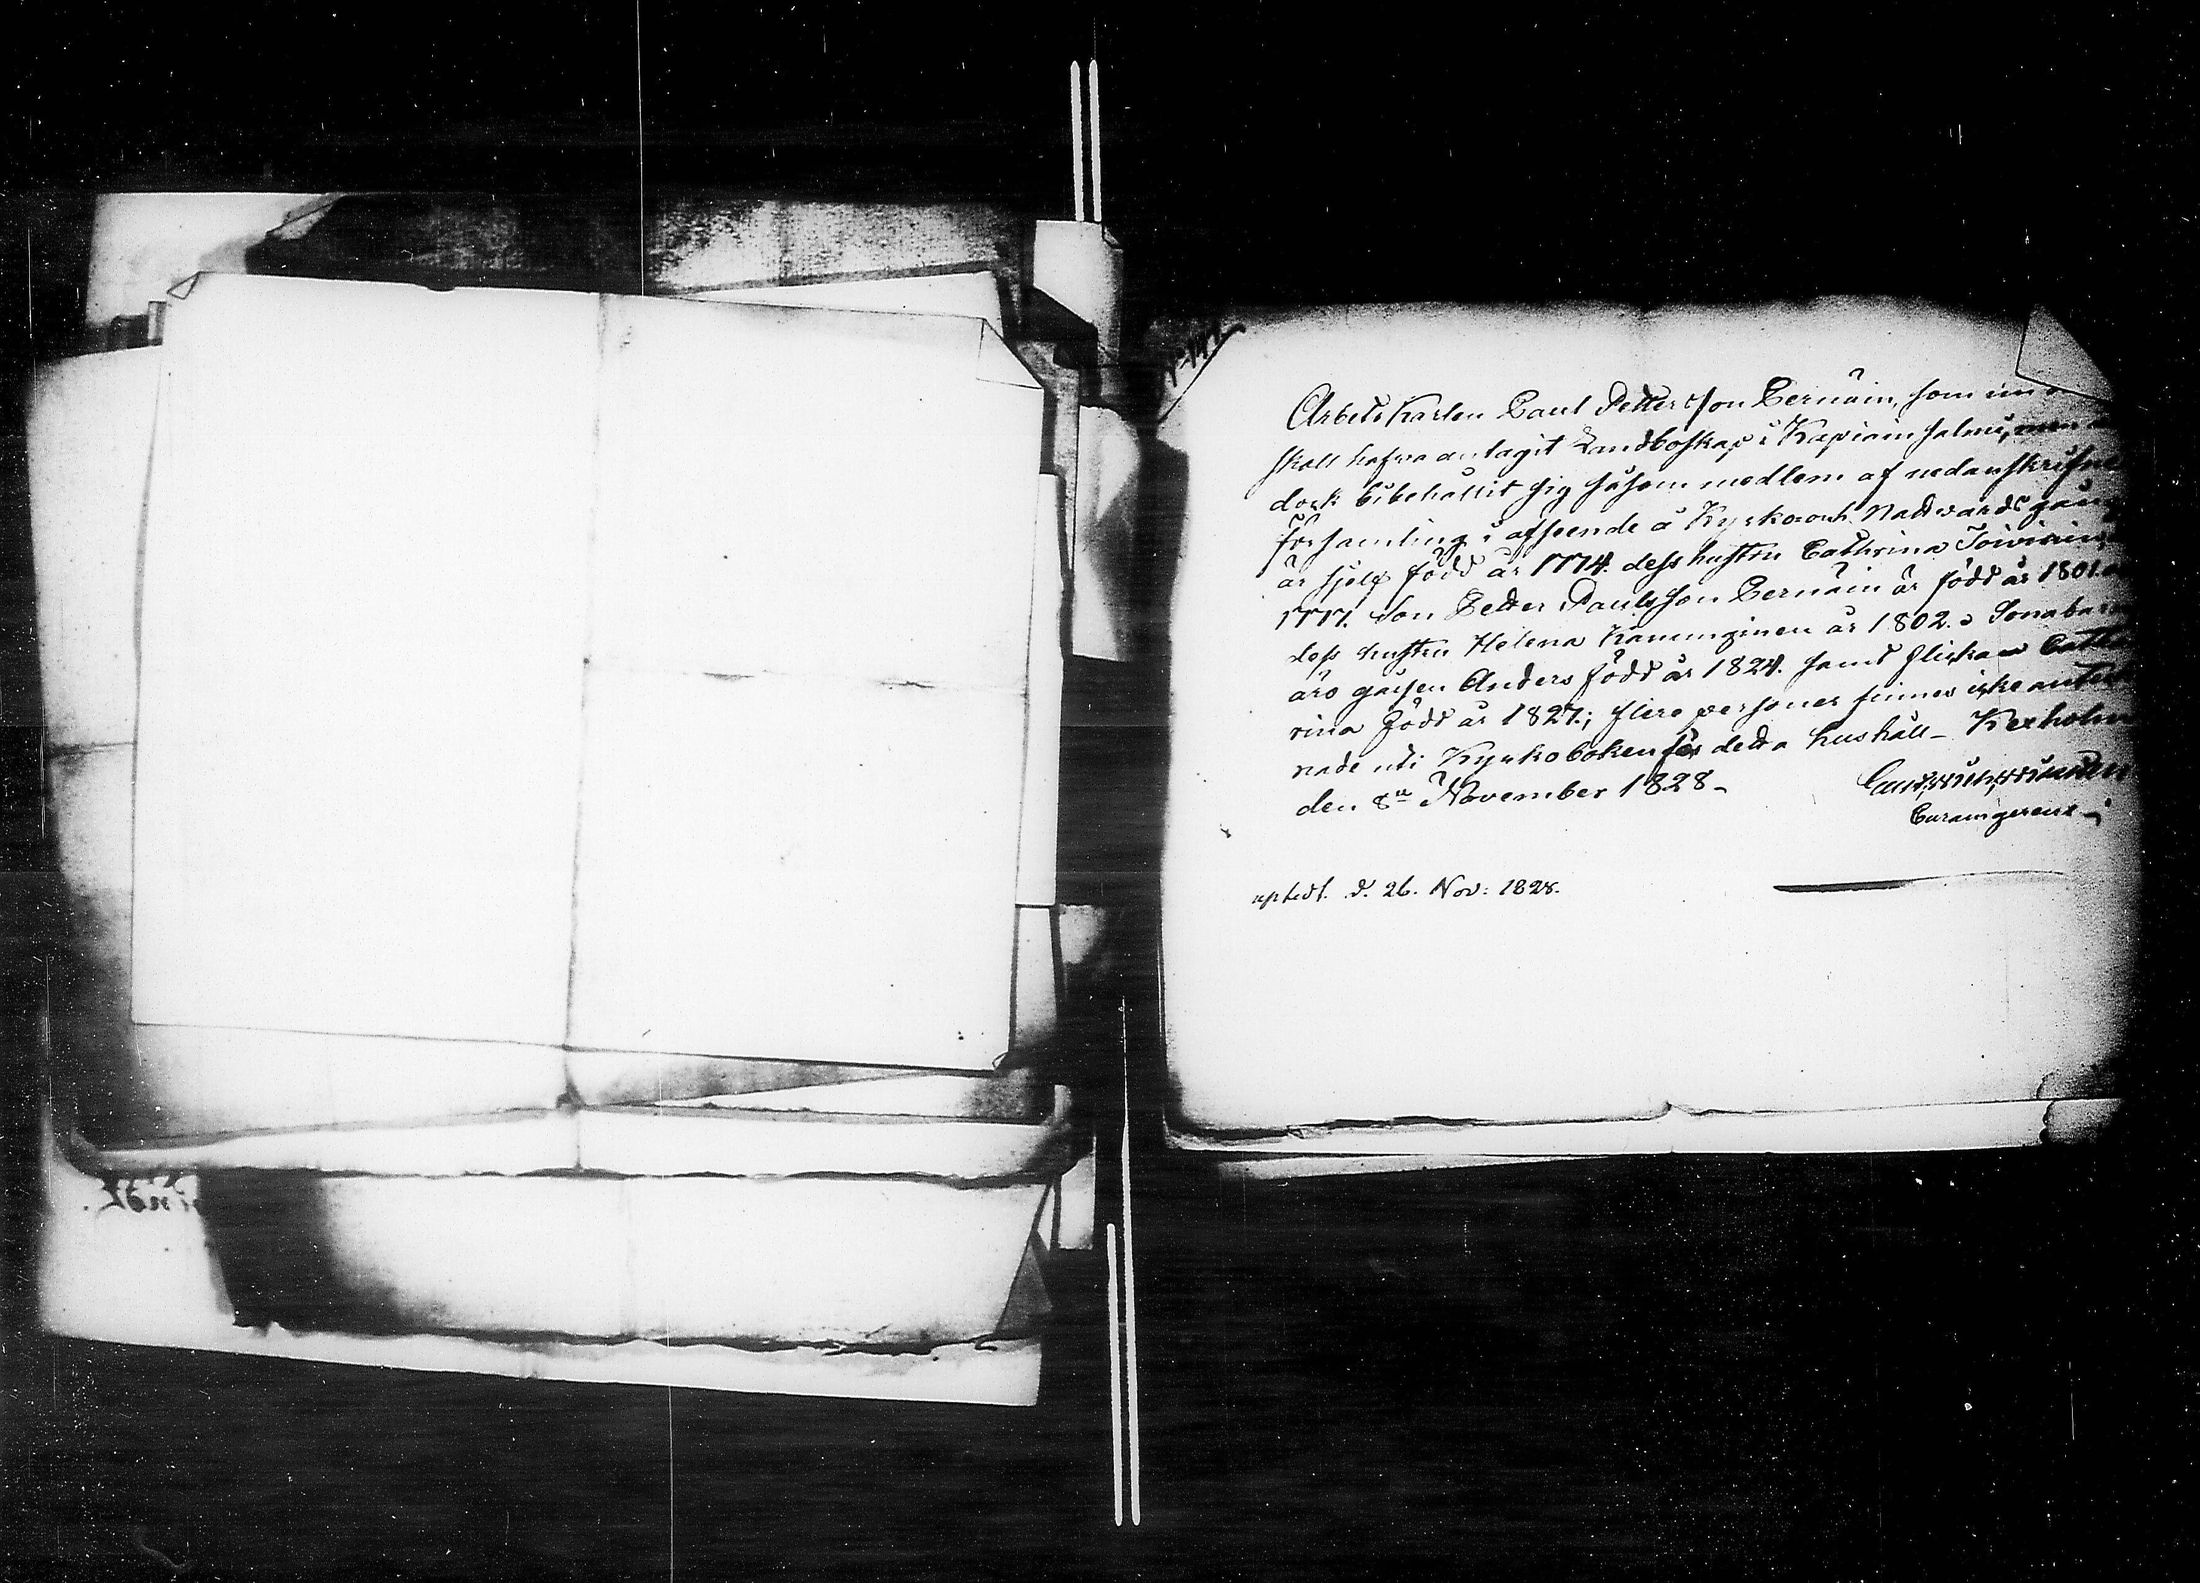 Arbets Karlen Paul Petterson Pernäin, som
skall hafva antagit Landboskap i Kapiain salmi, men
dock bibehållit sig såsom medlem af nedanskrifne
församling i afseende å Kyrko och Nattvards gång
är sjelf född år 1774. dess hustru Cathrina Toiviain
1777. Son Petter Paulsson Pernäin är född år 1801.
dess hustru Helena år 1802. Sonabarn
äro gåssen Anders född år 1824. samt flickan Cath
rina född år 1827.; flere personer finnes icke anteck
nade uti Kyrkoboken för detta hushåll - Kexholm
den 8de November 1828 -
d. 26. Nov: 1828.